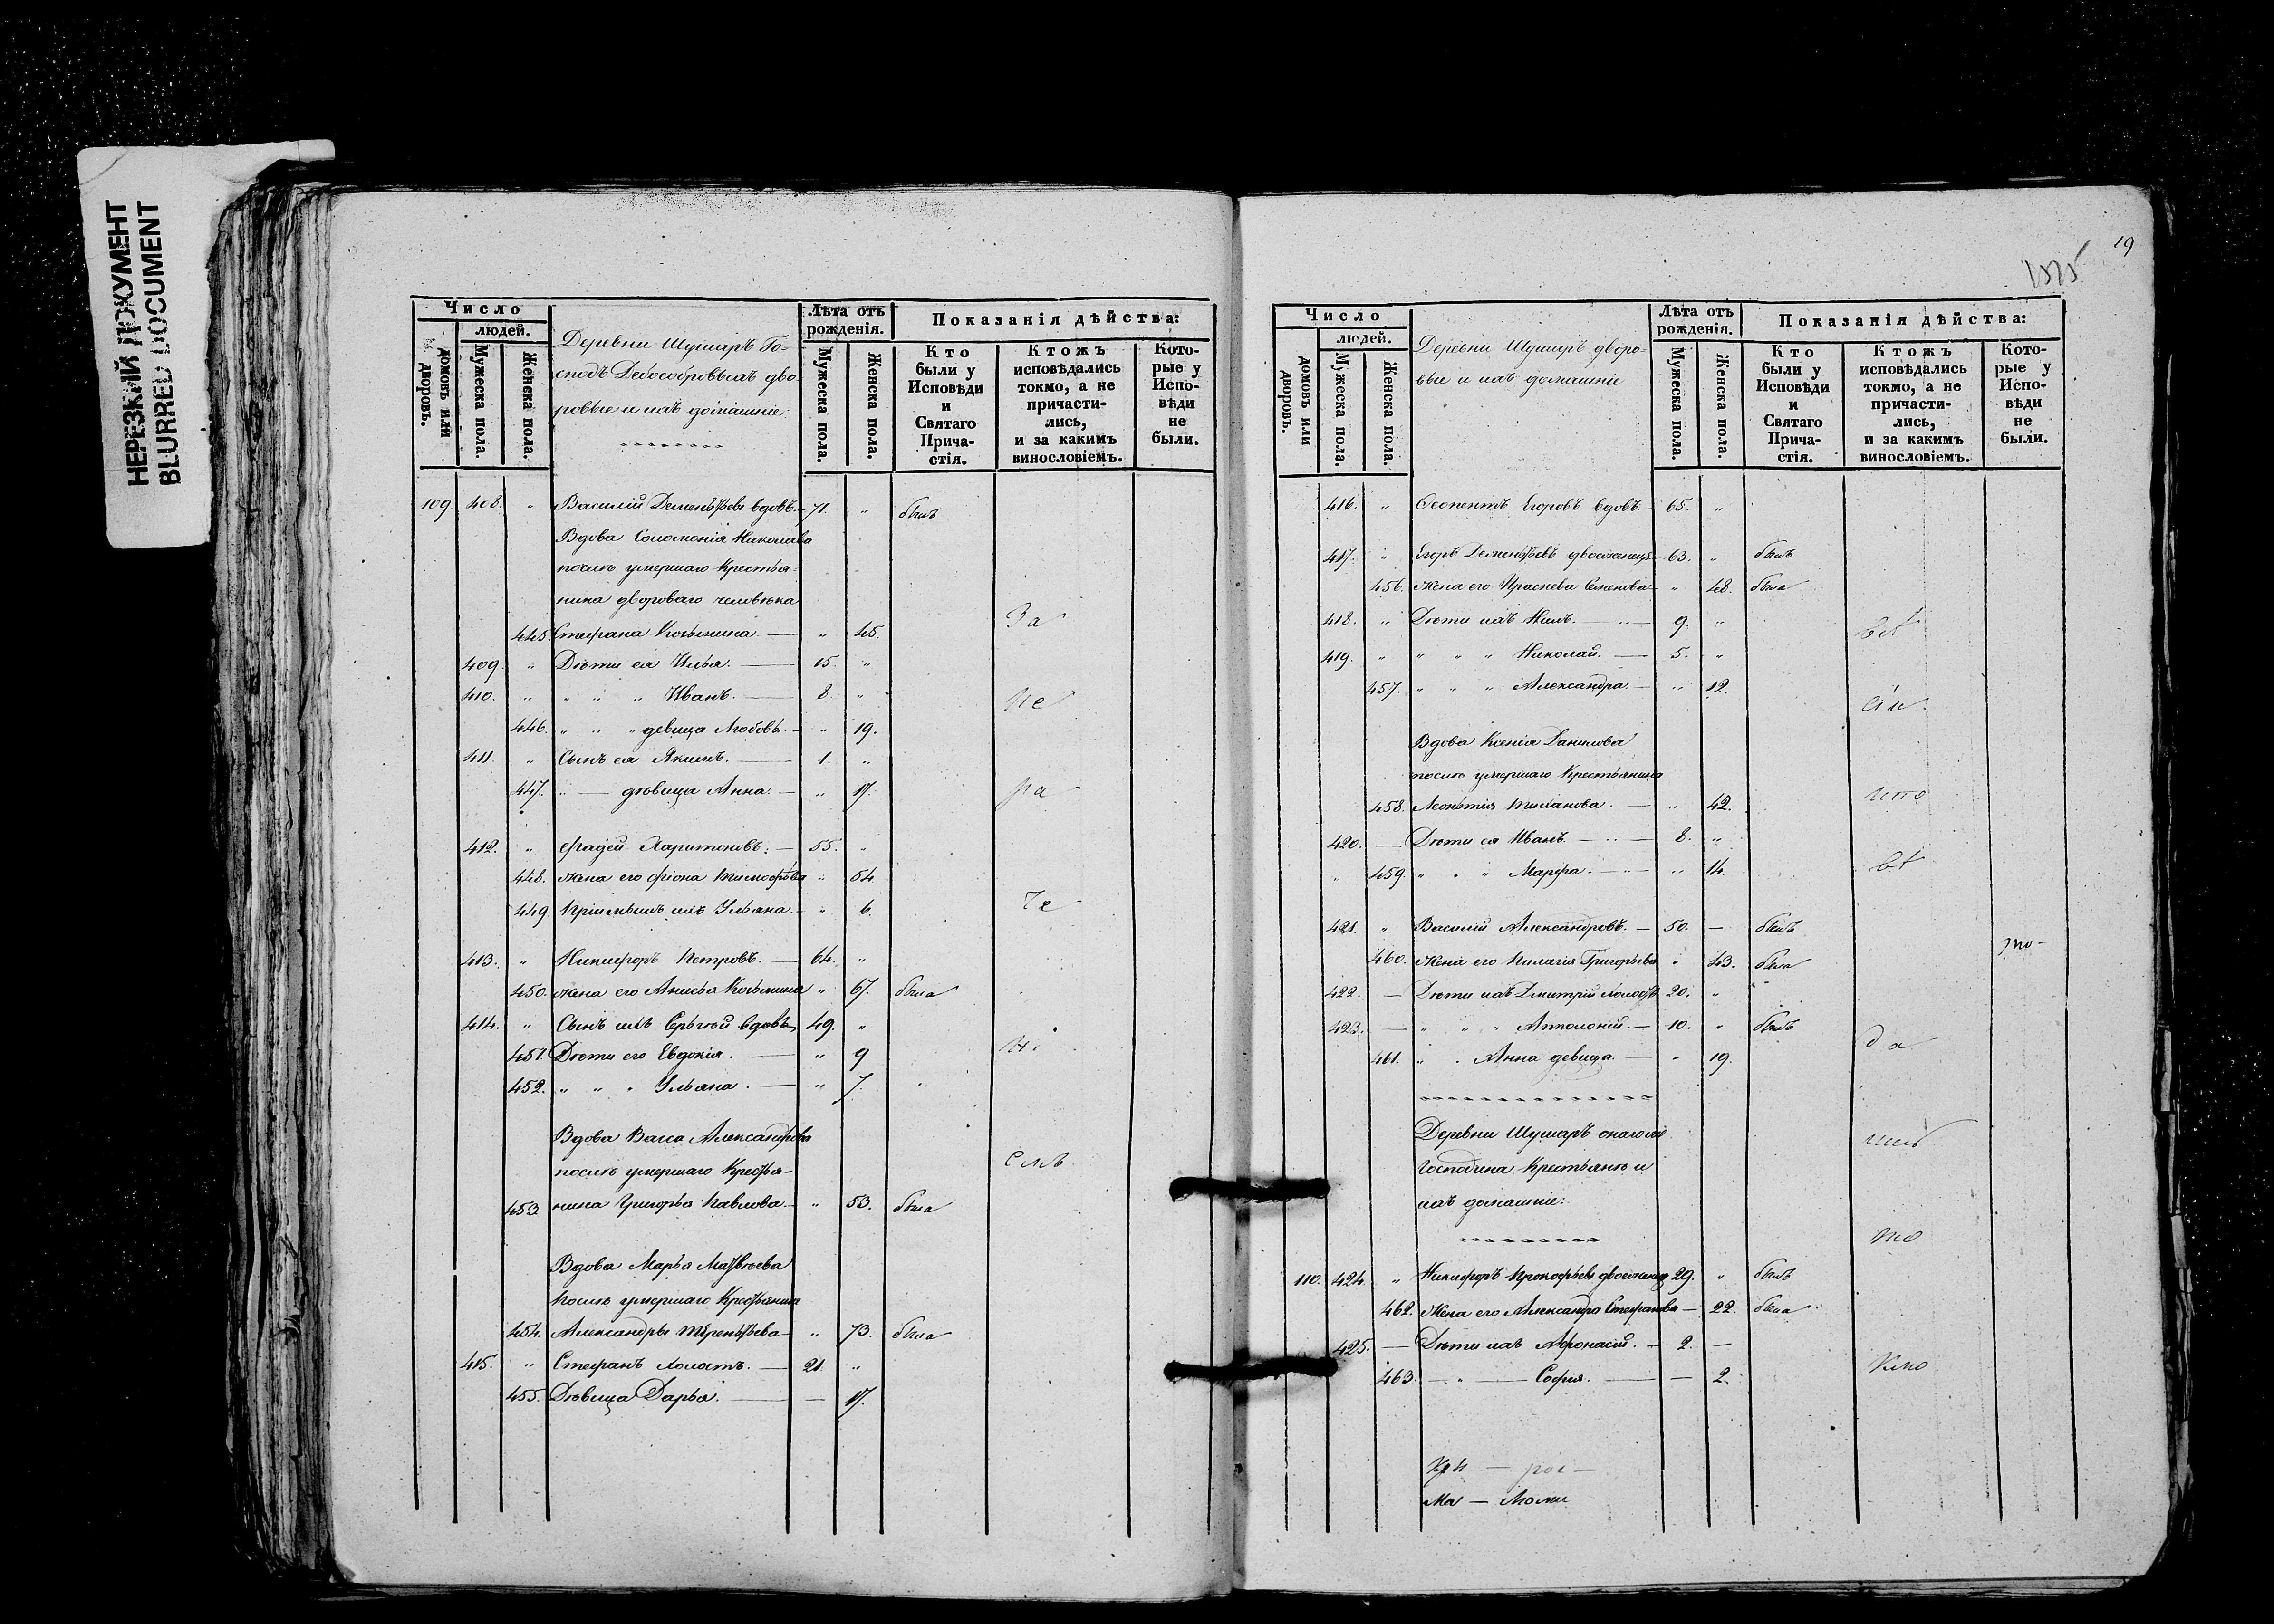 НЕРЕЗКИЙ ДОКУМЕНТ
BLURRED DOCUMENT
Число
людей.
домовъ или дворовъ.
Мужеска пола.
Женска пола.
Деревни Шушаръ Го-
сподъ дво-
ровые и ихъ домашніе:
Лѣта отъ рожденія.
Мужеска пола.
Женска пола.
Показанія дѣйства:
Кто были у Исповѣди и Святаго Прича-стія.
Ктожъ исповѣдались токмо, а не причасти-лись, и за какимъ винословіемъ.
Кото-рые у Испо-вѣди не были.
109. 408. " Василій Дементьевъ вдовъ. 71. " былъ
Вдова Соломонія Николаева
послѣ умершаго Крестья-
нина двороваго человѣка
445. Стефана Козьмина. — " 45.
За
409. " Дѣти ея Илья. — 15. "
410. " " " " Иванъ. — 8. "
не
446. " " " девица Любовь. — " 19.
411. " Сынъ ея Якимъ. — 1. "
447. " — дѣвица Анна. — " 17.
ра
412. " Фадей Харитоновъ. — 55. "
448. Жена его Фіона Тимофѣева " 54.
449. Пріемышъ ихъ Ульяна. — " 6.
че
413. " Никифоръ Петровъ. — 64. "
450. Жена его Анисья Козьмина " 67. была
414. " Сынъ ихъ Сергѣй вдовъ 49. "
451. Дѣти его Евдокія. — " 9
ні
452. " " " Ульяна. — " 7.
Вдова Васса Александрова
послѣ умершаго Крестья-
емъ
453 нина Григорья Павлова. — " 53. была
Вдова Марья Матвѣева
послѣ умершаго Крестьянина
454. Александры Терентьева — " 73. была
415. " Стефанъ холостъ. — 21. "
455. Дѣвица Дарья. — — 17.
19
Число
людей.
домовъ или дворовъ.
Мужеска пола.
Женска пола.
Деревни Шушаръ дворо-
вые и ихъ домашніе
Лѣта отъ рожденія.
Мужеска пола.
Женска пола.
Показанія дѣйства:
Кто были у Исповѣди и Святаго Прича-стія.
Ктожъ исповѣдались токмо, а не причасти-лись, и за какимъ винословіемъ.
Кото-рые у Испо-вѣди не были.
416. " Егоровъ вдовъ. — 65. "
417. " Егоръ Дементьевъ двоеженецъ 63. " былъ
456. Жена его Праскева Семенова — " 48. была
418. " Дѣти ихъ Нилъ. — " — 9. "
419. " " " " Николай. — 5. "
457. " " " Александра. — " 12.
Вдова Ксенія Данилова
послѣ умершаго Крестьянина
458. Леонтія — " 42.
420. — Дѣти ея Иванъ. — " — 8. "
" 459. " " " Марфа. — " — " 14.
421. " Василій Александровъ. — 50. — былъ
460. Жена его Пелагія Григорьева " 43. была
422. — Дѣти ихъ Дмитрій холостъ 20. "
423. — " " " Апполоній. — 10. " былъ
да
461. " " Анна девица. — " 19.
Деревни Шушаръ онаго же
Господина Крестьяне и
ихъ домашніе:
110. 424. " Никифоръ Прокофьевъ двоеженецъ 29. " былъ
462. Жена его Александра Стефанова — 22. была
425. — Дѣти ихъ Афонасій. — 2. —
463. — " — София. — — 2.